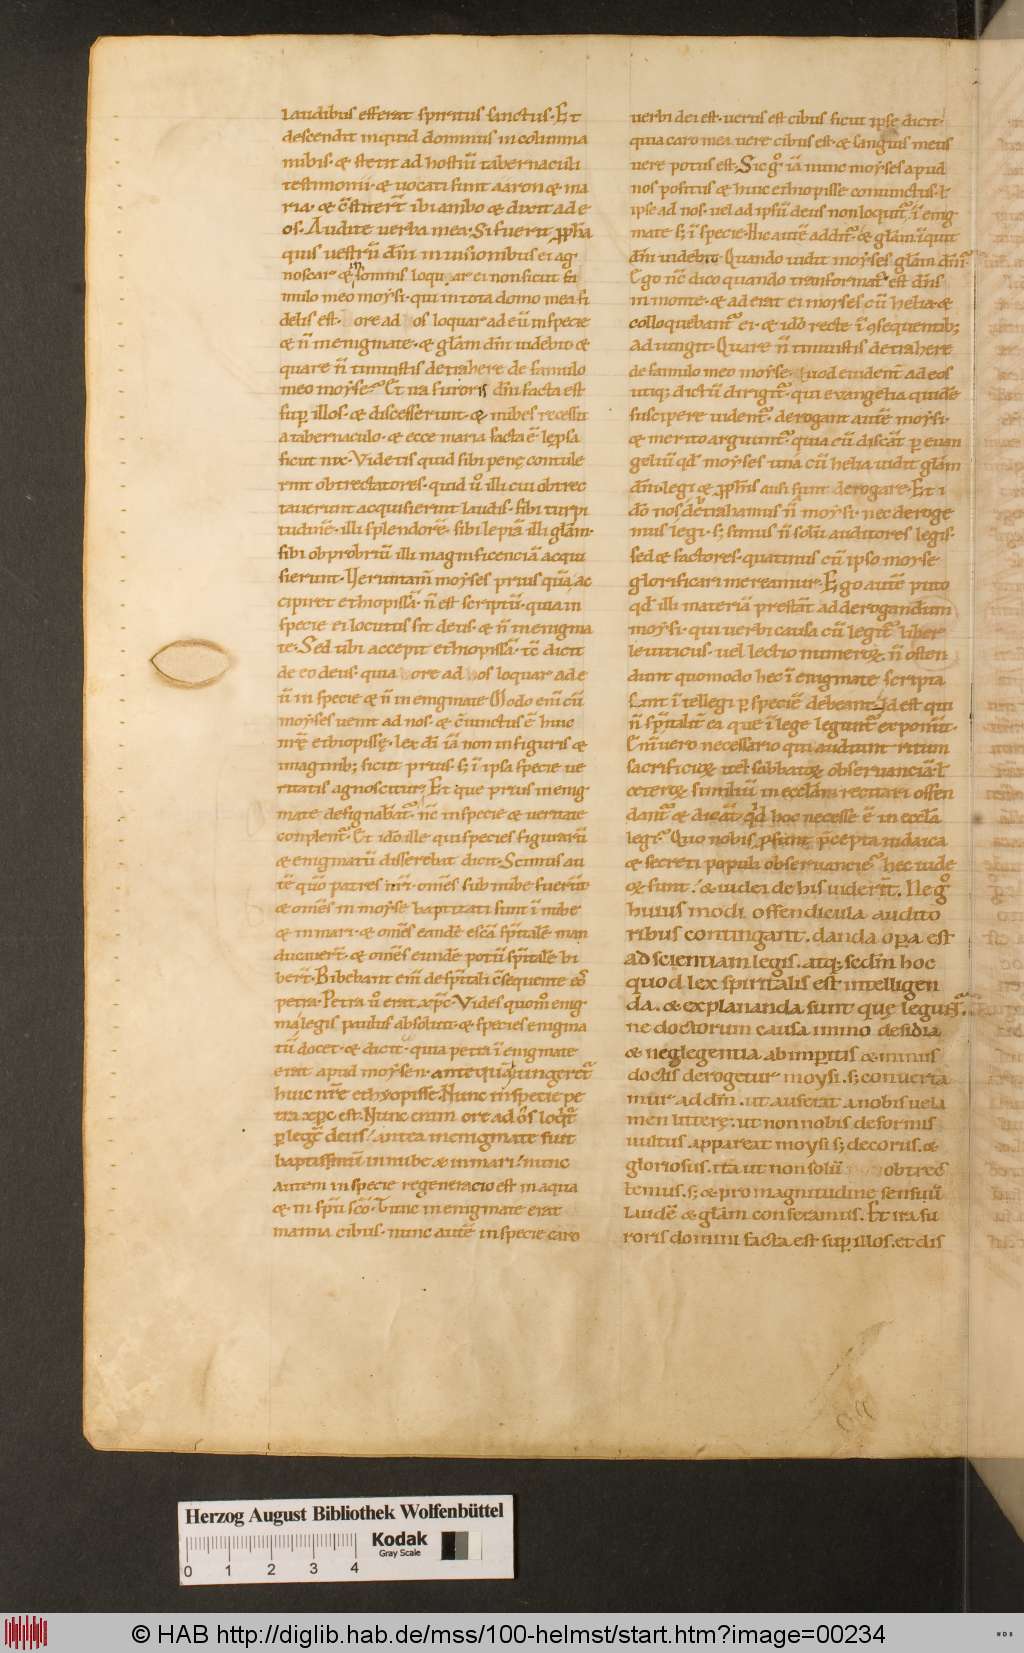 laudibus efferat spiritus sanctus. Et
descendit inquid dominus in columna
nubis. & stetit ad hostiū tabernaculi
testimonii. & uocati sunt aaron & ma
ria. & c̄stiter̄t ibi ambo & dixit ad e
os. Audite uerba mea. Si fuerit ꝓph̄a
quis uestrū dn̄i in uisionibus ei ag
noscar & in somnis loquar ei non sicut fa
mulo meo moysi. qui in tota domo mea fi
delis est. ore ad os loquar ad eū in specie
& n̄ in enigmate. & glām dn̄i uidebit &
quare n̄ timuistis detrahere de famulo
meo moyse. Et ira furoris dn̄i facta est
sup illos. & discesserunt. & nubes recessit
a tabernaculo. & ecce maria facta ē lepsa
sicut nix. Videtis quid sibi penę contule
rint obtrectatores. quid ū illi cui obtrec
tauerunt acquisierint laudis. sibi turpi
tudinē. illi splendorē. sibi leprā illi glām.
sibi obprobriū illi magnificenciā acqui
sierunt. Verumtam̄ moyses prius quā ac
cipiret ethiopissā. n̄ est scriptū. quia in
specie ei locutus sit deus. & n̄ in enigma
te. Sed ubi accepit ethiopissā. tc̄ dicit
de eo deus. quia ore ad os loquar ad e
ū in specie & n̄ in enigmate Modo eni cū
moyses uenit ad nos. & c̄iunctus ē huic
nr̄ę ethiopissę. lex dī iā non in figuris &
imaginib; sicut prius. s; ī ipsa specie ue
ritatis agnoscitur. Et que prius in enig
mate designabāt. nc̄ in specie & ueritate
conplent. Et ido ille qui species figurarū
& enigmatū disserebat dicit. Scimus au
tē quō patres nr̄i omēs sub nube fuerūt
& omēs in moyse baptizati sunt ī nube
& in mari. & omēs eandē escā spitalē man
ducauer̄t. & omēs eundē potū spitalē bi
ber̄t. Bibebant em̄ de spitali c̄sequente eos
petra. Petra ū erat xp̄c. Vides quom̄ enig
ma legis paulus absoluit. & species enigma
tū docet. & dicit. quia petra ī enigmate
erat apud moysen. antequā iungeret
huic nr̄e ethyopisse. Nunc in specie pe
tra xp̄c est. Nunc enim ore ad os loqt
p legē deus. antea in enigmate fuit
baptismū in nube. & in mari. nunc
autem in specie regeneracio est in aqua
& in spū scō. Tunc in enigmate erat
manna cibus. nunc autē in specie caro
uerbi dei est. uerus est cibus sicut ipse dicit.
quia caro mea uere cibus est. & sanguis meus
uere potus est. Sic g° iā nunc moyses apud
nos positus & huic ethiopisse coniunctus. l
ipse ad nos. uel ad ipsū deus non loquit ī enig
mate s; ī specie. Hic autē addit. & glām inquit
dn̄i uidebit. Quando uidit moyses glām dn̄i
Ego nē dico quando transformat est dn̄s
in monte. & ad erat ei moyses cū helia. &
colloquebant ei. & ido recte ī ꝯsequentib;
ad iungit. Quare n̄ timuistis detrahere
de famulo meo moyse. Quod euident ad eos
utiq; dictū dirigit. qui euangelia quidē
suscipere uident. derogant autē moysi.
& merito arguunt. quia cū discāt p euan
geliū qd moyses una cū helia uidit glām
dn̄i. legi & ꝓphis ausi sunt derogare. Et i
dō nos detrahamus n̄ moysi. nec deroge
mus legi. s; simus n̄ solū auditores legis.
sed & factores. quatinus cū ipso moyse
glorificari mereamur. Ego autē puto
qd illi materiā prestāt ad derogandum
moysi. qui uerbi causa cū legit liber
leuiticus. uel lectio numeroꝝ. n̄ osten
dunt quomodo hec ī enigmate scripta
sunt ītellegi p speciē debeant. Id est qui
n̄ spitalit ea que ī lege legunt exponūt.
Cm̄ uero necessario qui audiunt ritum
sacrificioꝝ uel sabbatoꝝ obseruanciā. l
ceteroꝝ similiū in ecclām recitari offen
dant & dicāt qd hoc necesse ē in ecclā
legi. Quo nobis psunt pcepta iudaica
& secreti populi obseruancie. hec iude
oꝝ sunt. & iudei de his uiderit. Ne g°
huius modi offendicula audito
ribus contingant. danda opa est
ad scientiam legis. atq; sedm̄ hoc
quod lex spiritalis est intelligen
da. & explananda sunt quę legunt
ne doctorum causa immo desidia
& neglegentia. ab impitis & minus
doctis derogetur moysi. s; conuerta
mur ad dm̄. ut auferat a nobis uela
men litterę. ut non nobis deformis
uultus. appareat moysi s; decorus. &
gloriosus. ita ut non solū obtrec
temus. s; & pro magnitudine sensuū
luidē & glām conferamus. Et ira fu
roris domini facta est sup illos. et dis
Herzog August Bibliothek Wolfenbüttel
0 1 2 3 4
Kodak
Gray Scale
© HAB http://diglib.hab.de/mss/100-helmst/start.htm?image=00234